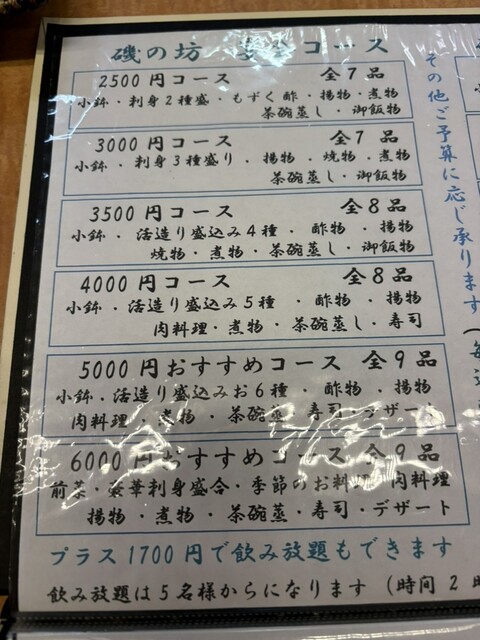 磯の坊 コース
2500円コース 全7品
小鉢・刺身2種盛・もずく酢・揚物・煮物
茶碗蒸し・御飯物
3000円コース 全7品
小鉢・刺身3種盛り・揚物・焼物・煮物
茶碗蒸し・御飯物
3500円コース 全8品
小鉢・活造り盛込み4種・酢物・揚物
焼物・煮物・茶碗蒸し・御飯物
4000円コース 全8品
小鉢・活造り盛込み5種・酢物・揚物
肉料理・煮物・茶碗蒸し・寿司
5000円おすすめコース 全9品
小鉢・活造り盛込みお6種・酢物・揚物
肉料理・煮物・茶碗蒸し・寿司・デザート
6000円おすすめコース 全9品
前菜・豪華刺身盛合・季節のお料理・肉料理
揚物・煮物・茶碗蒸・寿司・デザート
プラス1700円で飲み放題もできます
飲み放題は5名様からになります(時間2時
その他ご予算に応じ承ります